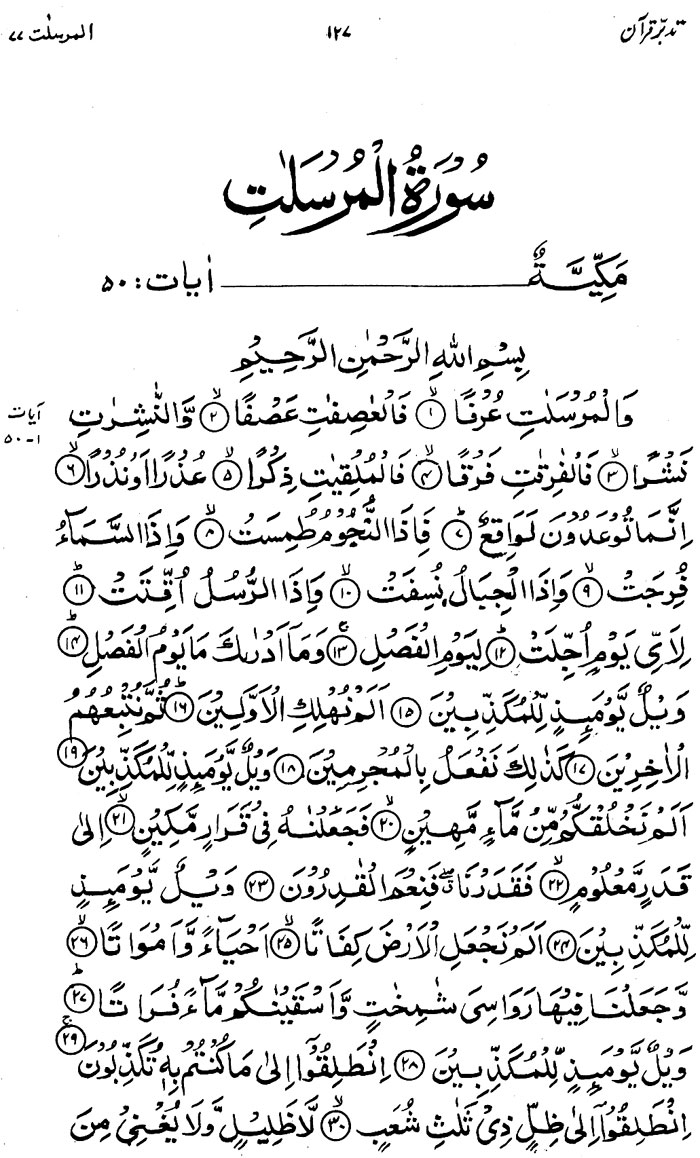 تدبّرِ قرآن ۱۲۷ المرسلٰت ۷۷
سُوْرَةُ الْمُرْسَلٰتِ
مَكِّيَّةٌ اٰيات : ۵۰
بِسْمِ اللهِ الرَّحْمٰنِ الرَّحِيْمِ
وَالْمُرْسَلٰتِ عُرْفًا ۙ﴿۱﴾ فَالْعٰصِفٰتِ عَصْفًا ۙ﴿۲﴾ وَّالنّٰشِرٰتِ
آیات
۱-۵۰
نَشْرًا ۙ﴿۳﴾ فَالْفٰرِقٰتِ فَرْقًا ۙ﴿۴﴾ فَالْمُلْقِيٰتِ ذِكْرًا ۙ﴿۵﴾ عُذْرًا اَوْ نُذْرًا ۙ﴿۶﴾
اِنَّمَا تُوْعَدُوْنَ لَوَاقِعٌ ؕ﴿۷﴾ فَاِذَا النُّجُوْمُ طُمِسَتْ ۙ﴿۸﴾ وَاِذَا السَّمَآءُ
فُرِجَتْ ۙ﴿۹﴾ وَاِذَا الْجِبَالُ نُسِفَتْ ۙ﴿۱۰﴾ وَاِذَا الرُّسُلُ اُقِّتَتْ ؕ﴿۱۱﴾
لِاَىِّ يَوْمٍ اُجِّلَتْ ؕ﴿۱۲﴾ لِيَوْمِ الْفَصْلِ ۚ﴿۱۳﴾ وَمَاۤ اَدْرٰىكَ مَا يَوْمُ الْفَصْلِ ؕ﴿۱۴﴾
وَيْلٌ يَّوْمَىِٕذٍ لِّلْمُكَذِّبِيْنَ ﴿۱۵﴾ اَلَمْ نُهْلِكِ الْاَوَّلِيْنَ ؕ﴿۱۶﴾ ثُمَّ نُتْبِعُهُمُ
الْاٰخِرِيْنَ ﴿۱۷﴾ كَذٰلِكَ نَفْعَلُ بِالْمُجْرِمِيْنَ ﴿۱۸﴾ وَيْلٌ يَّوْمَىِٕذٍ لِّلْمُكَذِّبِيْنَ ﴿۱۹﴾
اَلَمْ نَخْلُقْكُّمْ مِّنْ مَّآءٍ مَّهِيْنٍ ۙ﴿۲۰﴾ فَجَعَلْنٰهُ فِىْ قَرَارٍ مَّكِيْنٍ ۙ﴿۲۱﴾ اِلٰى
قَدَرٍ مَّعْلُوْمٍ ۙ﴿۲۲﴾ فَقَدَرْنَا ۖ فَنِعْمَ الْقٰدِرُوْنَ ﴿۲۳﴾ وَيْلٌ يَّوْمَىِٕذٍ
لِّلْمُكَذِّبِيْنَ ﴿۲۴﴾ اَلَمْ نَجْعَلِ الْاَرْضَ كِفَاتًا ۙ﴿۲۵﴾ اَحْيَآءً وَّاَمْوَاتًا ۙ﴿۲۶﴾
وَّجَعَلْنَا فِيْهَا رَوَاسِىَ شٰمِخٰتٍ وَّاَسْقَيْنٰكُمْ مَّآءً فُرَاتًا ؕ﴿۲۷﴾
وَيْلٌ يَّوْمَىِٕذٍ لِّلْمُكَذِّبِيْنَ ﴿۲۸﴾ اِنْطَلِقُوْۤا اِلٰى مَا كُنْتُمْ بِهٖ تُكَذِّبُوْنَ ۚ﴿۲۹﴾
اِنْطَلِقُوْۤا اِلٰى ظِلٍّ ذِىْ ثَلٰثِ شُعَبٍ ۙ﴿۳۰﴾ لَّا ظَلِيْلٍ وَّلَا يُغْنِىْ مِنَ